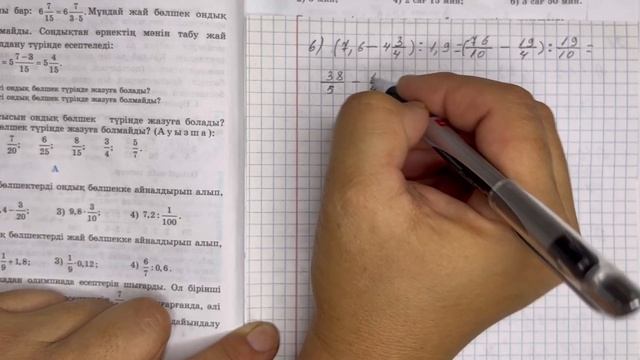 ы бар: 6 7/15 = 6 7/3·5. Мұндай жай бөлшек ондық
майды. Сондықтан өрнектің мәнін табу жай
лдану түрінде есептеледі:
= 5 7−3/15 = 5 4/15.
і ондық бөлшек түрінде жазуға болады?
сі ондық бөлшек түрінде жазуға болмайды?
сысын ондық бөлшек түрінде жазуға болады?
бөлшек түрінде жазуға болмайды? (Ауызша):
7/20; 6/25; 8/15; 3/4; 5/7.
А
бөлшектерді ондық бөлшекке айналдырып алып,
,4 − 3/20; 3) 9,8 · 3/10; 4) 7,2 : 1/100.
қ бөлшектерді жай бөлшекке айналдырып алып,
1/9 + 1,8; 3) 1/9 · 0,12; 4) 6/7 : 0,6.
олимпиада есептерін шығарды. Ол бірінші
дайындалу
6) (7,6 − 4 3/4) : 1,9 = (76/10 − 19/4) : 19/10 =
38/5 −